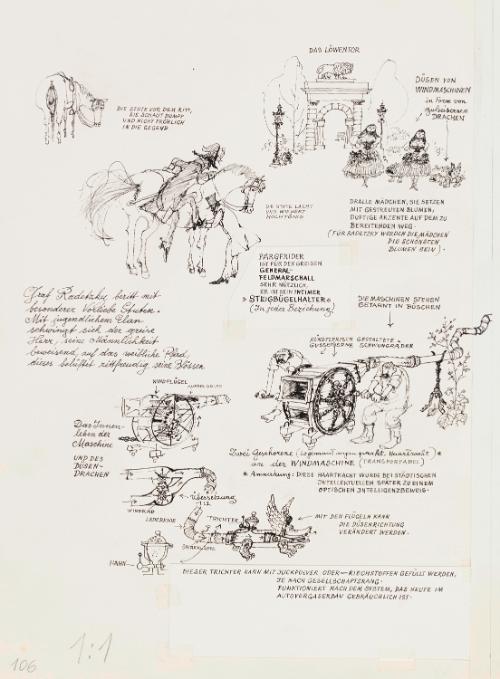 DAS LÖWENTOR
DÜSEN VON
WINDMASCHINEN
in Form von
DRACHEN
DIE STUTE VOR DEM RITT,
SIE SCHAUT DUMPF
UND NICHT FRÖHLICH
IN DIE GEGEND
DIE STUTE LACHT
UND WIEHERT
DRALLE MÄDCHEN, SIE SETZEN
MIT GESTREUTEN BLUMEN,
DUFTIGE AKZENTE AUF DEM ZU
BEREITENDEN WEG.
(FÜR RADETZKY WERDEN DIE MÄDCHEN
DIE SCHÖNSTEN
BLUMEN SEIN).
PARGFRIDER
IST FÜR DEN GREISEN
GENERAL-
FELDMARSCHALL
SEHR NÜTZLICH,
ER IST SEIN INTIMER
STEIGBÜGELHALTER
(In jeder Beziehung)
Graf Radetzky, beritt mit
besonderer Vorliebe Stuten.
Mit jugendlichem Elan
schwingt sich der greise
Herr, seine Männlichkeit
beweisend, auf das weibliche Pferd,
dieses belüftet rittfreudig, seine Nüssen.
DIE MASCHINEN STEHEN
GETARNT IN BÜSCHEN
KÜNSTLERISCH GESTALTETE
GUSSEISERNE SCHWUNGRÄDER
WINDFLÜGEL
Das Innen-
leben der
Maschine
UND DES
DÜSEN-
DRACHEN
Zwei Geschorene
an der WINDMASCHINE (TRANSPORTABEL)
* Anmerkung: DIESE HAARTRACHT WURDE BEI STÄDTISCHEN
INTELLEKTUELLEN SPÄTER ZU EINEM
OPTISCHEN INTELLIGENZBEWEIS.
Übersetzung
1:2
WINDRAD
LEDERHOSE
TRICHTER
MIT DEN FLÜGELN KANN
DIE DÜSENRICHTUNG
VERÄNDERT WERDEN.
HAHN
DIESER TRICHTER KANN MIT JUCKPULVER ODER RIECHSTOFFEN GEFÜLLT WERDEN,
JE NACH GESELLSCHAFTSRANG.
FUNKTIONIERT NACH DEM SYSTEM, DAS HEUTE IM
AUTOVERGASERBAU GEBRÄUCHLICH IST.
1:1
106